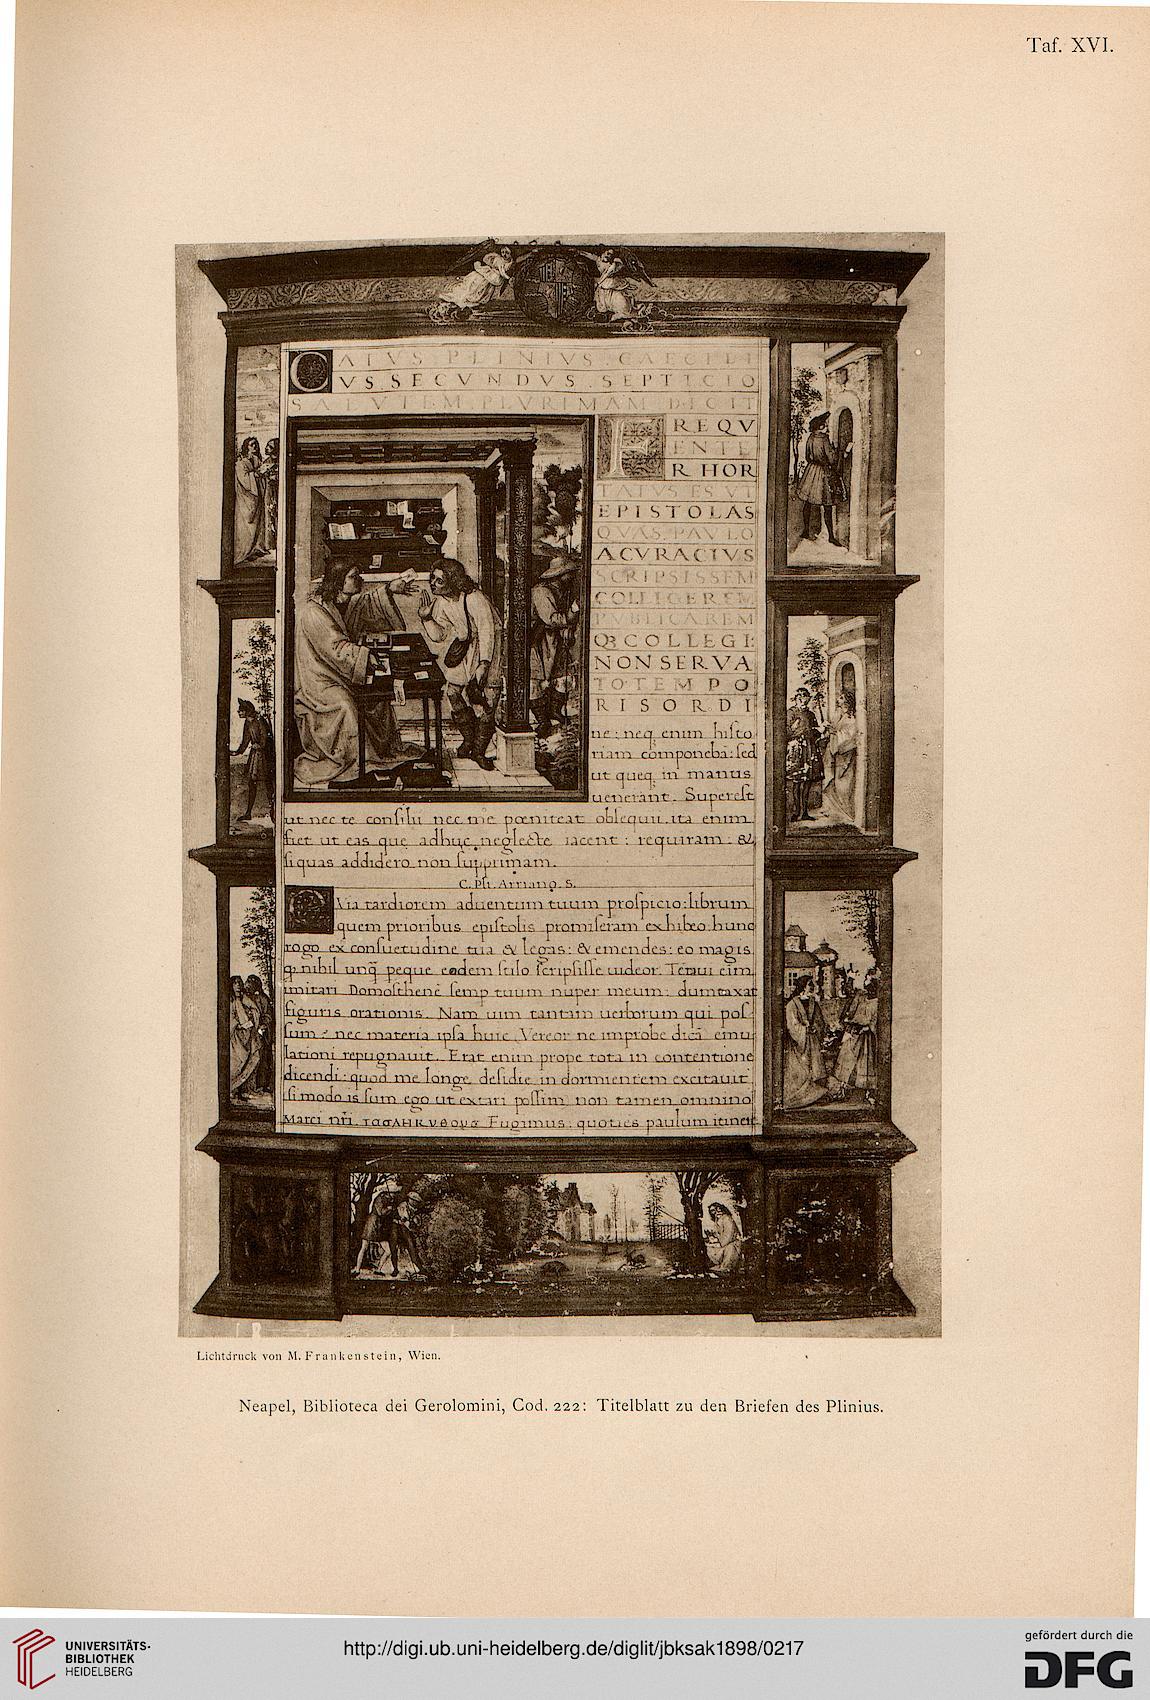 Taf. XVI.
CAIVS PLINIVS CAECILI
VS SECVNDVS SEPTICIO
SALVTEM PLVRIMAM DICIT
FREQV
ENTE
R HOR
TATVS ES VT
EPISTOLAS
QVAS PAVLO
ACVRACIVS
SCRIPSISSEM
COLLIGEREM
PVBLICAREM
Qꝫ COLLEGI:
NON SERVA
TO TEMPO
RIS ORDI
ne: neq enim histo
riam componebā: sed
ut queq in manus
uenerant. Superest
ut nec te consilii nec me pœniteat obsequii. ita enim
fiet ut eas que adhuc neglecte iacent: requiram: &
si quas addidero non supprimam.
C. Pli. Arriano. S.
Via tardiorem aduentum tuum prospicio: librum
quem prioribus epistolis promiseram exhibeo. hunc
rogo ex consuetudine tua & legas: & emendes: eo magis
q nihil unq peque eodem stilo scripsisse uideor. Tētaui eim
imitari Domosthenē semp tuum nuper meum: dumtaxat
figuris orationis. Nam uim tantum uerborum qui pos
sum: nec materia ipsa huic. Vereor ne improbe dicā emu
lationi repugnauit. Erat enim prope tota in contentione
dicendi: quod me longe desidie indormientem excitauit
si modo is sum ego ut exitari possim non tamen omnino
Marci nr̄i Fugimus: quoties paulum itinere
Lichtdruck von M. Frankenstein, Wien.
Neapel, Biblioteca dei Gerolomini, Cod. 222: Titelblatt zu den Briefen des Plinius.
UNIVERSITÄTS-
BIBLIOTHEK
HEIDELBERG
http://digi.ub.uni-heidelberg.de/diglit/jbksak1898/0217
gefördert durch die
DFG